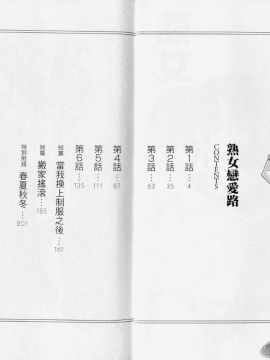 熟女戀愛路
CONTENTS
第1話…4
第2話…35
第3話…63
第4話…87
第5話…111
第6話…135
短篇 當我換上制服之後…161
短篇 搬家搖滾…185
特別附錄 春夏秋冬…201